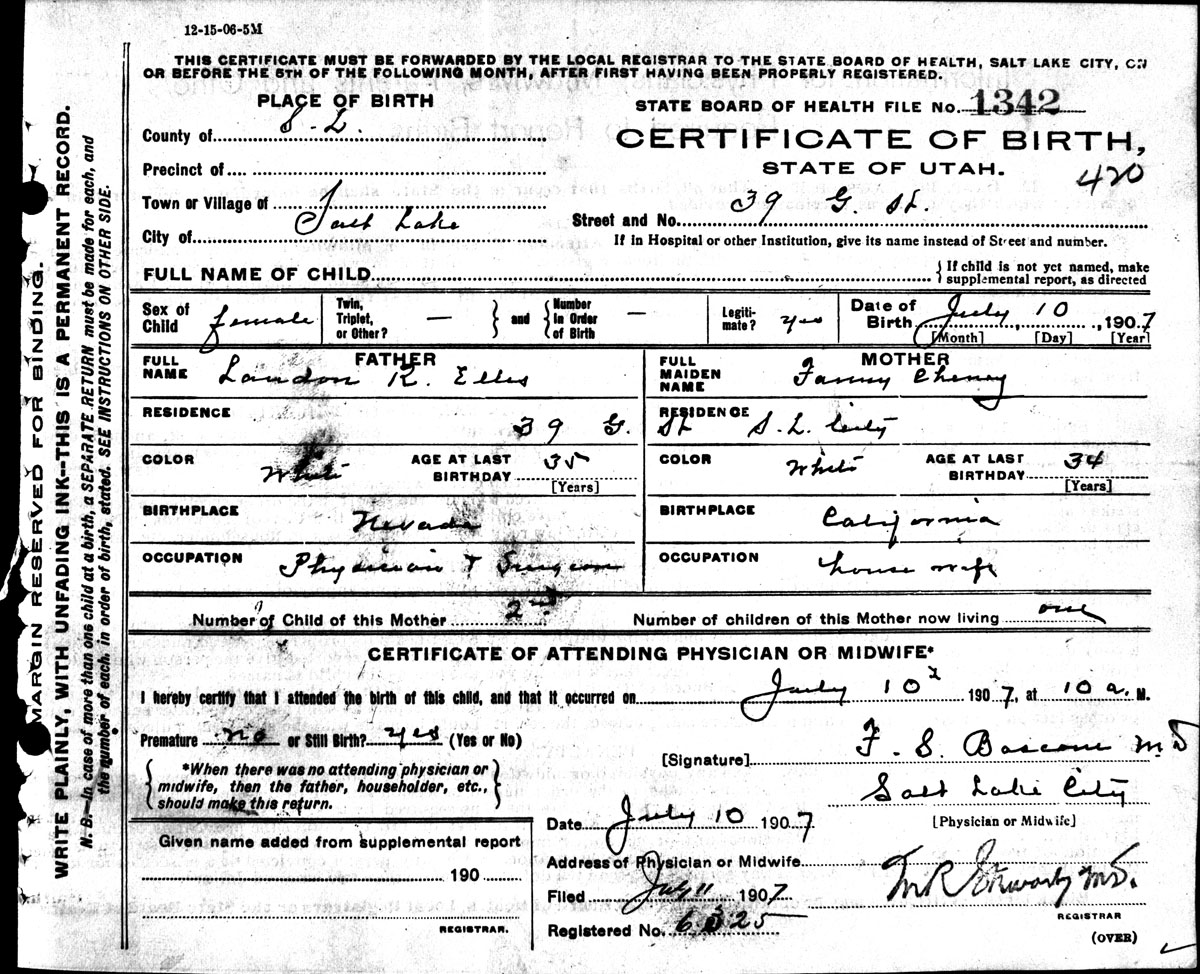 12-15-06-5M
THIS CERTIFICATE MUST BE FORWARDED BY THE LOCAL REGISTRAR TO THE STATE BOARD OF HEALTH, SALT LAKE CITY, ON
OR BEFORE THE 5TH OF THE FOLLOWING MONTH, AFTER FIRST HAVING BEEN PROPERLY REGISTERED.
PLACE OF BIRTH
County of S. L.
Precinct of
Town or Village of
City of Salt Lake
STATE BOARD OF HEALTH FILE No. 1342
CERTIFICATE OF BIRTH,
STATE OF UTAH.
420
Street and No. 39 G. St.
If in Hospital or other Institution, give its name instead of Street and number.
FULL NAME OF CHILD
If child is not yet named, make
supplemental report, as directed
Sex of Child female
Twin, Triplet, or Other? —
and
Number in Order of Birth —
Legitimate? yes
Date of Birth July 10, 1907
[Month] [Day] [Year]
FATHER
FULL NAME Landon R. Ellis
RESIDENCE 39 G. St S. L. City
COLOR White
AGE AT LAST BIRTHDAY 35
[Years]
BIRTHPLACE Nevada
OCCUPATION Physician & Surgeon
MOTHER
FULL MAIDEN NAME Fanny Cheney
RESIDENCE
COLOR White
AGE AT LAST BIRTHDAY 34
[Years]
BIRTHPLACE California
OCCUPATION house wife
Number of Child of this Mother 2nd
Number of children of this Mother now living one
CERTIFICATE OF ATTENDING PHYSICIAN OR MIDWIFE*
I hereby certify that I attended the birth of this child, and that it occurred on July 10, 1907, at 10 a. M.
Premature no or Still Birth? yes (Yes or No)
*When there was no attending physician or
midwife, then the father, householder, etc.,
should make this return.
[Signature] F. S. Bascom MD
Salt Lake City
[Physician or Midwife]
Date July 10 1907
Address of Physician or Midwife
Filed July 11 1907
Registered No. 6325
REGISTRAR
(OVER)
Given name added from supplemental report
190
REGISTRAR.
MARGIN RESERVED FOR BINDING.
WRITE PLAINLY, WITH UNFADING INK--THIS IS A PERMANENT RECORD.
N. B.--In case of more than one child at a birth, a SEPARATE RETURN must be made for each, and
the number of each, in order of birth, stated. SEE INSTRUCTIONS ON OTHER SIDE.